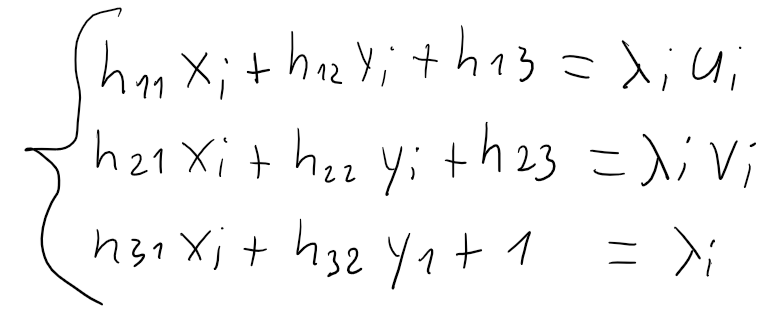 h₁₁ xᵢ + h₁₂ yᵢ + h₁₃ = λᵢ uᵢ
h₂₁ xᵢ + h₂₂ yᵢ + h₂₃ = λᵢ vᵢ
h₃₁ xᵢ + h₃₂ y₁ + 1 = λᵢ